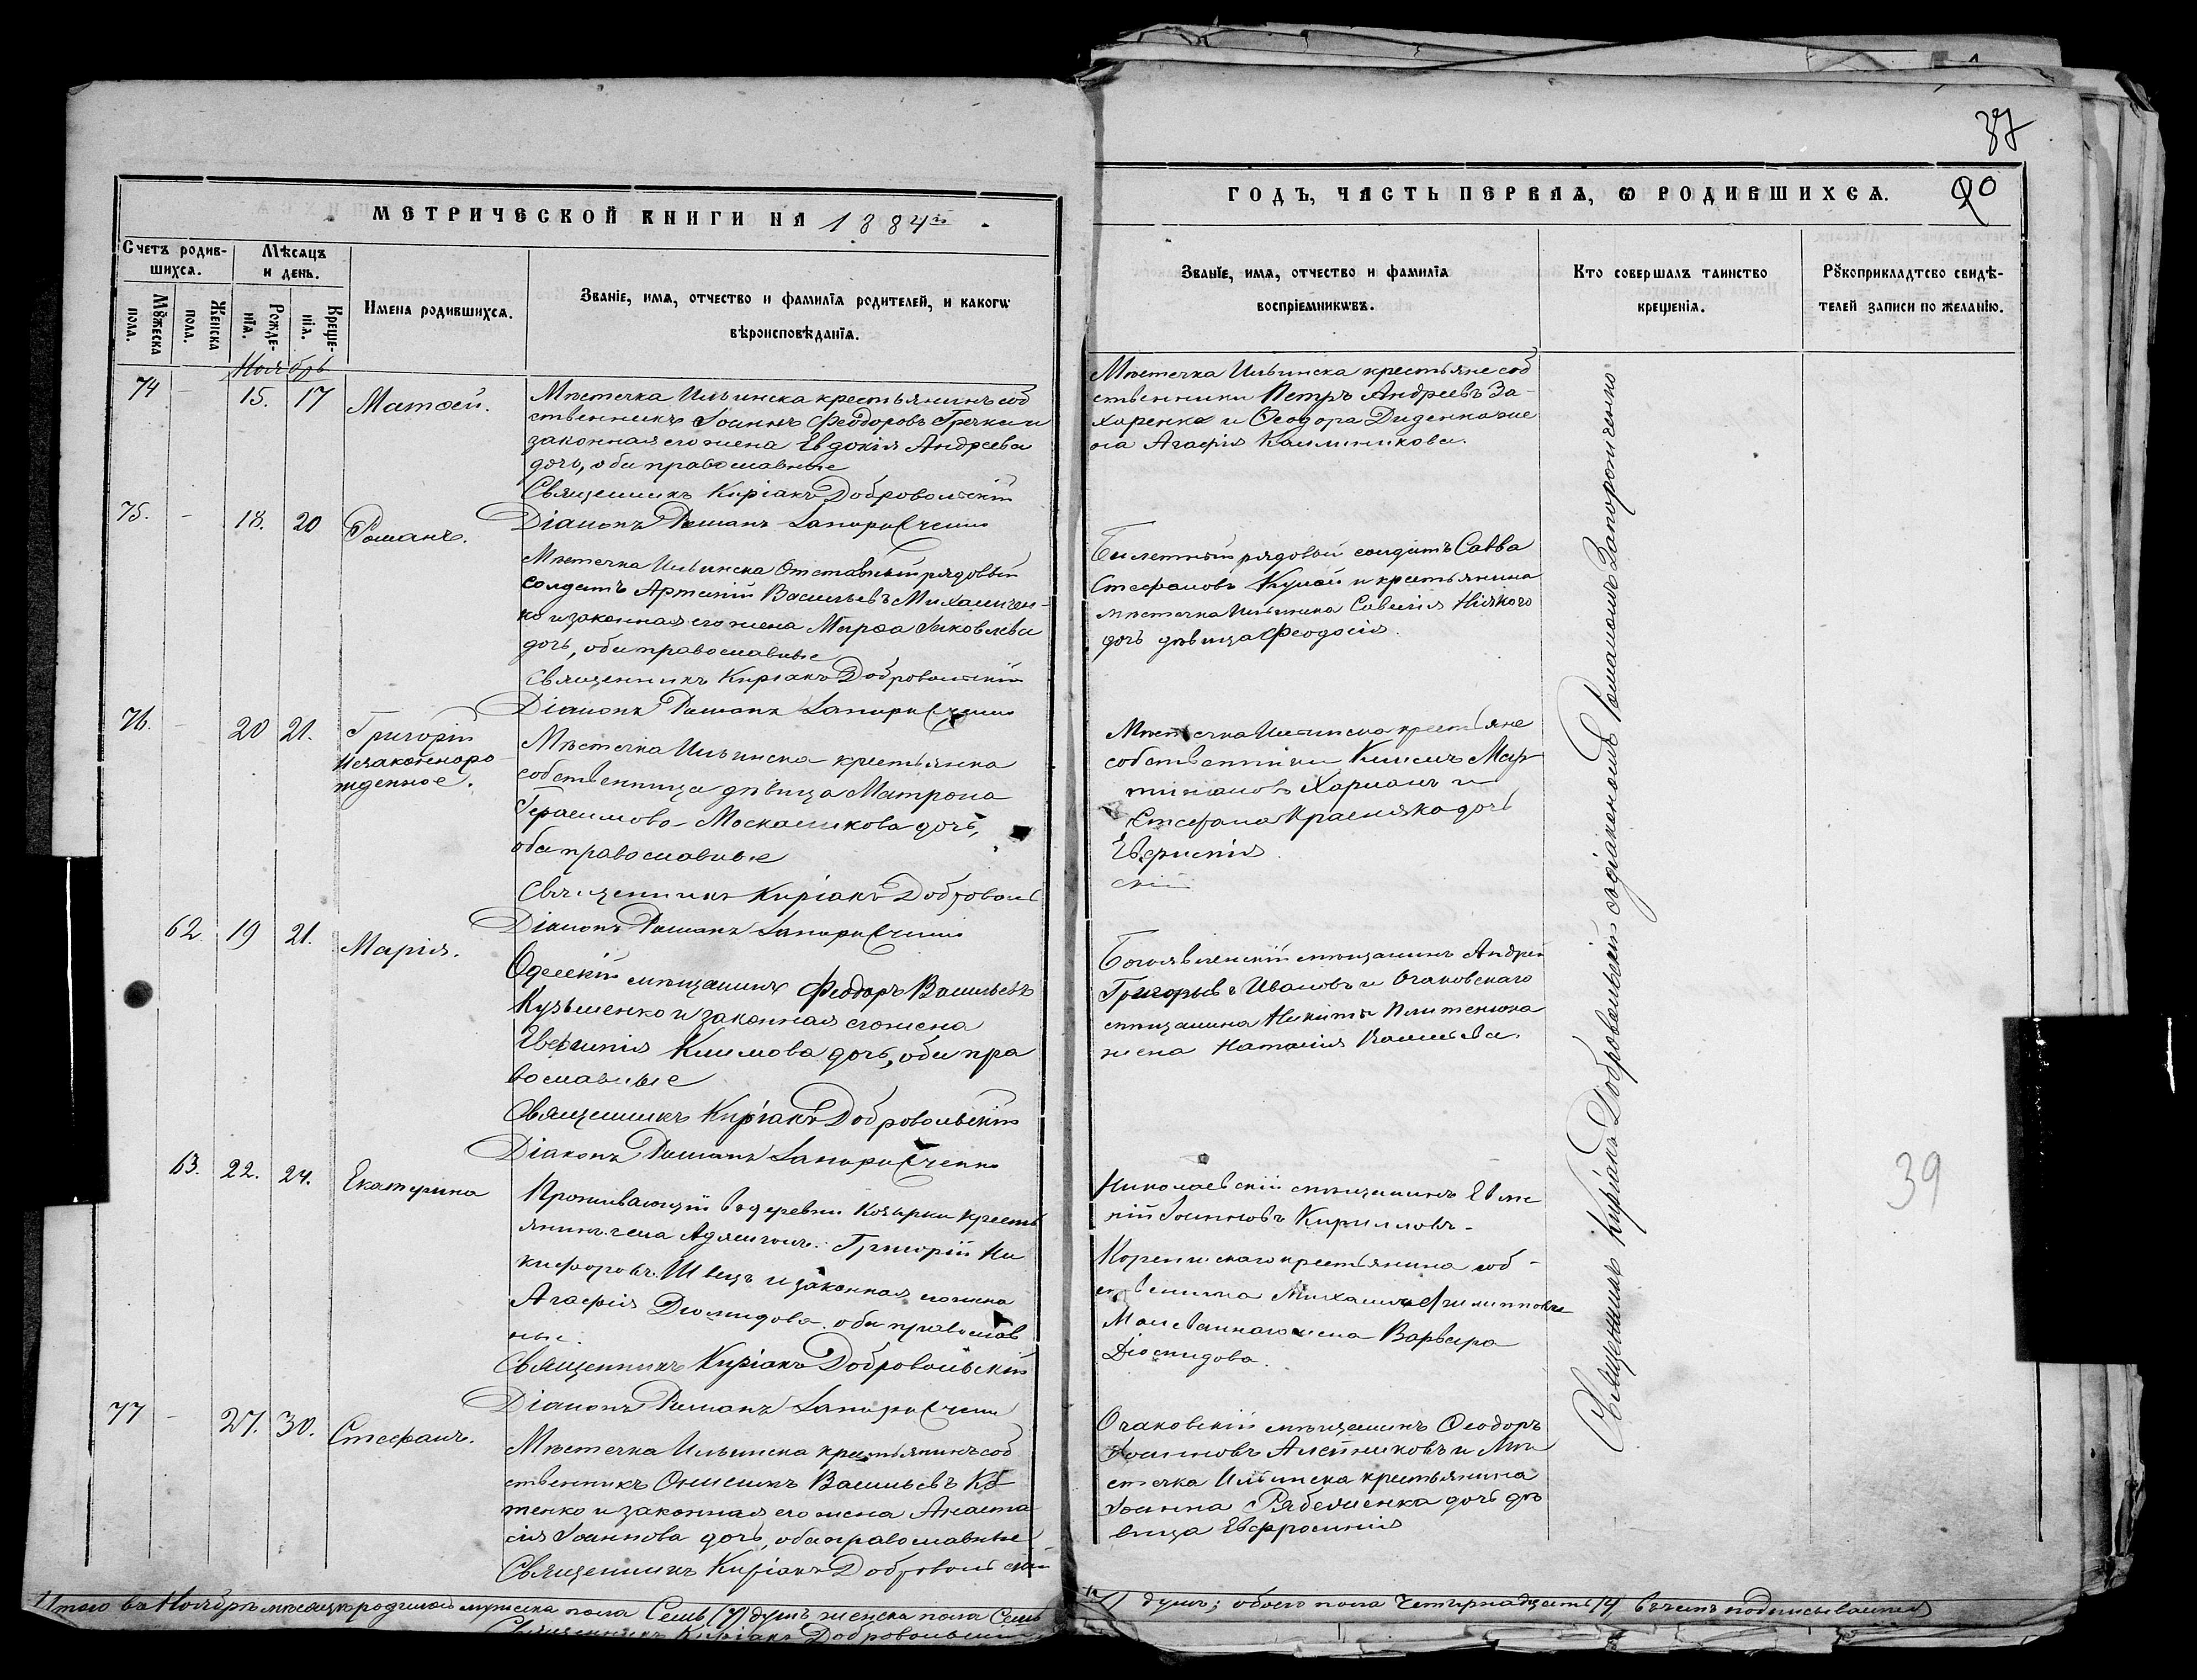 37
МЕТРИЧЕСКОЙ КНИГИ НА 1884й
ГОДЪ, ЧАСТЬ ПЕРВАЯ, Ѡ РОДИВШИХСЯ.
20
Счетъ родив-
шихся.
Мѣсяцъ
и день.
Мꙋжеска
пола.
Женска
пола.
Рожде-
нїя.
Креще-
нїя.
Имена родившихся.
Званїе, имя, отчество и фамилїя родителей, и какогѡ
вѣроисповѣданїя.
Званїе, имя, отчество и фамилїя
воспрїемникѡвъ.
Кто совершалъ таинство
крещенїя.
Рꙋкоприкладтсво свидѣ-
телей записи по желанїю.
Ноябрь
74 - 15. 17 Матѳей.
Мѣстечка Ильинска крестьянинъ соб
ственникъ Іоаннъ Ѳеодоровъ Гречка и
законная его жена Евдокія Андреева
дочь, оба православные
Священникъ Киріакъ Добровольскій
Діаконъ Романъ Запорожченко
Мѣстечка Ильинска крестьяне соб
ственники Петръ Андреевъ За-
харенко и Ѳеодора Диденка же
на Агафія Калиникова.
75. - 18. 20 Романъ.
Мѣстечка Ильинска Отставный рядовый
солдатъ Артемій Васильевъ Михаличен-
ко и законная его жена Марѳа Іаковлева
дочь, оба православные
Священникъ Киріакъ Добровольскій
Діаконъ Романъ Запорожченко
Билетный рядовой солдатъ Савва
Стефановъ и крестьянина
мѣстечка Ильинска Савелія
дочь дѣвица Ѳеодосія.
76. - 20 21. Григорій
Незаконноро
жденное.
Мѣстечка Ильинска крестьянка
собственница дѣвица Матрона
Герасимова Москаликова дочь,
оба православные
Священникъ Киріакъ Доброволь
скій
Діаконъ Романъ Запорожченко
Мѣстечка Ильинска крестьяне
собственники Климъ Мар
тиановъ Харланъ и
Стефана дочь
Евфимія.
62 19 21. Марія.
Одесскій мѣщанинъ Ѳеодоръ Васильевъ
Кузьменко и законная его жена
Евфимія Климова дочь, оба пра
вославные
Священникъ Киріакъ Добровольскій
Діаконъ Романъ Запорожченко
Богоявленскій мѣщанинъ Андрей
Григорьевъ Ивановъ и Очаковскаго
мѣщанина Никиты
жена Наталія Васильева.
63. 22. 24. Екатерина
Проживающій въ деревни Козырки крестья
янинъ села Аджигола Григорій Ни
кифоровъ Швецъ и законная его жена
Агафія Діомидова оба православ
ные.
Священникъ Киріакъ Добровольскій
Діаконъ Романъ Запорожченко
Николаевскій мѣщанинъ Евге
ній Іоанновъ Кирилловъ -
крестьянина соб-
ственника Михаила Филиппова
жена Варвара
Діомидова.
77 - 27. 30. Стефанъ.
Мѣстечка Ильинска крестьянинъ соб
ственникъ Онисимъ Васильевъ Ко
тенко и законная его жена Анаста
сія Іоаннова дочь, оба православные
Священникъ Киріакъ Добровольскій
Очаковскій мѣщанинъ Ѳеодоръ
Іоанновъ Алейниковъ и Мѣ
стечка Ильинска крестьянина
Іоанна дочь дѣ
вица Евфросинія
Священникъ Киріакъ Добровольскій съ діакономъ Романомъ Запорожченко
39
Итого въ Ноябрѣ мѣсяцѣ родилось мужеска пола Семь (7) душъ женска пола Семь
(7) душъ; обоего пола Четырнадцать 14 въ чемъ подписываемся
Священникъ Киріакъ Добровольскій